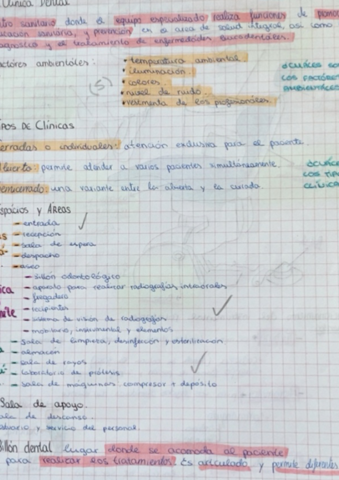 Clínica Dental
centro sanitario donde el equipo especializado realiza funciones de
educación sanitaria, y prevención en el área de salud integral, así como
diagnóstico y el tratamiento de enfermedades bucodentales.
Factores ambientales:
• temperatura ambiental
• iluminación
• colores
• nivel de ruido
• vestimenta de los profesionales
(5)
Tipos de Clínicas
cerradas o individuales: atención exclusiva para el paciente
abierto: permite atender a varios pacientes simultáneamente
semicerrado: una variante entre la abierta y la cerrada
Espacios y Áreas
- entrada
- recepción
- sala de espera
- despacho
- aseo
- sillón odontológico
- aparato para realizar radiografías intraorales
- fregadero
- sistema de visión de radiografías
- mobiliario, instrumental y elementos
- Sala de limpieza, desinfección y esterilización
- almacén
- sala de rayos
- laboratorio de prótesis
- sala de máquinas: compresor + depósito
Sala de apoyo.
sala de descanso.
vestuario y servicio del personal.
Sillón dental lugar donde se acomoda al paciente
para realizar los tratamientos. Es articulado y permite diferentes